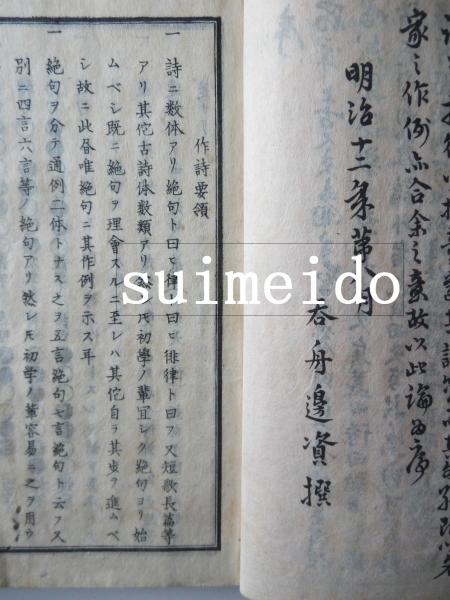 家之作例亦合余之意故以此論為序
明治十二年第八月
呑舟邊資撰
作詩要領
一 詩ニ数体アリ絶句ト曰ヒ律ト曰ヒ徘律ト曰フ又短歌長篇等
アリ其佗古詩体數類アリ然レ𪜈初學ノ輩宜シク絶句ヨリ始
ムベシ既ニ絶句ヲ理會スルニ至レハ其佗自ラ其域ヲ進ムベ
シ故ニ此昼唯絶句ニ其作例ヲ示ス耳
一 絶句ヲ分テ通例二体トナス之ヲ五言絶句七言絶句ト云フ又
別ニ四言六言等ノ絶句アリ然レ𪜈初学ノ輩容易ニ之ヲ用ウ
suimeido